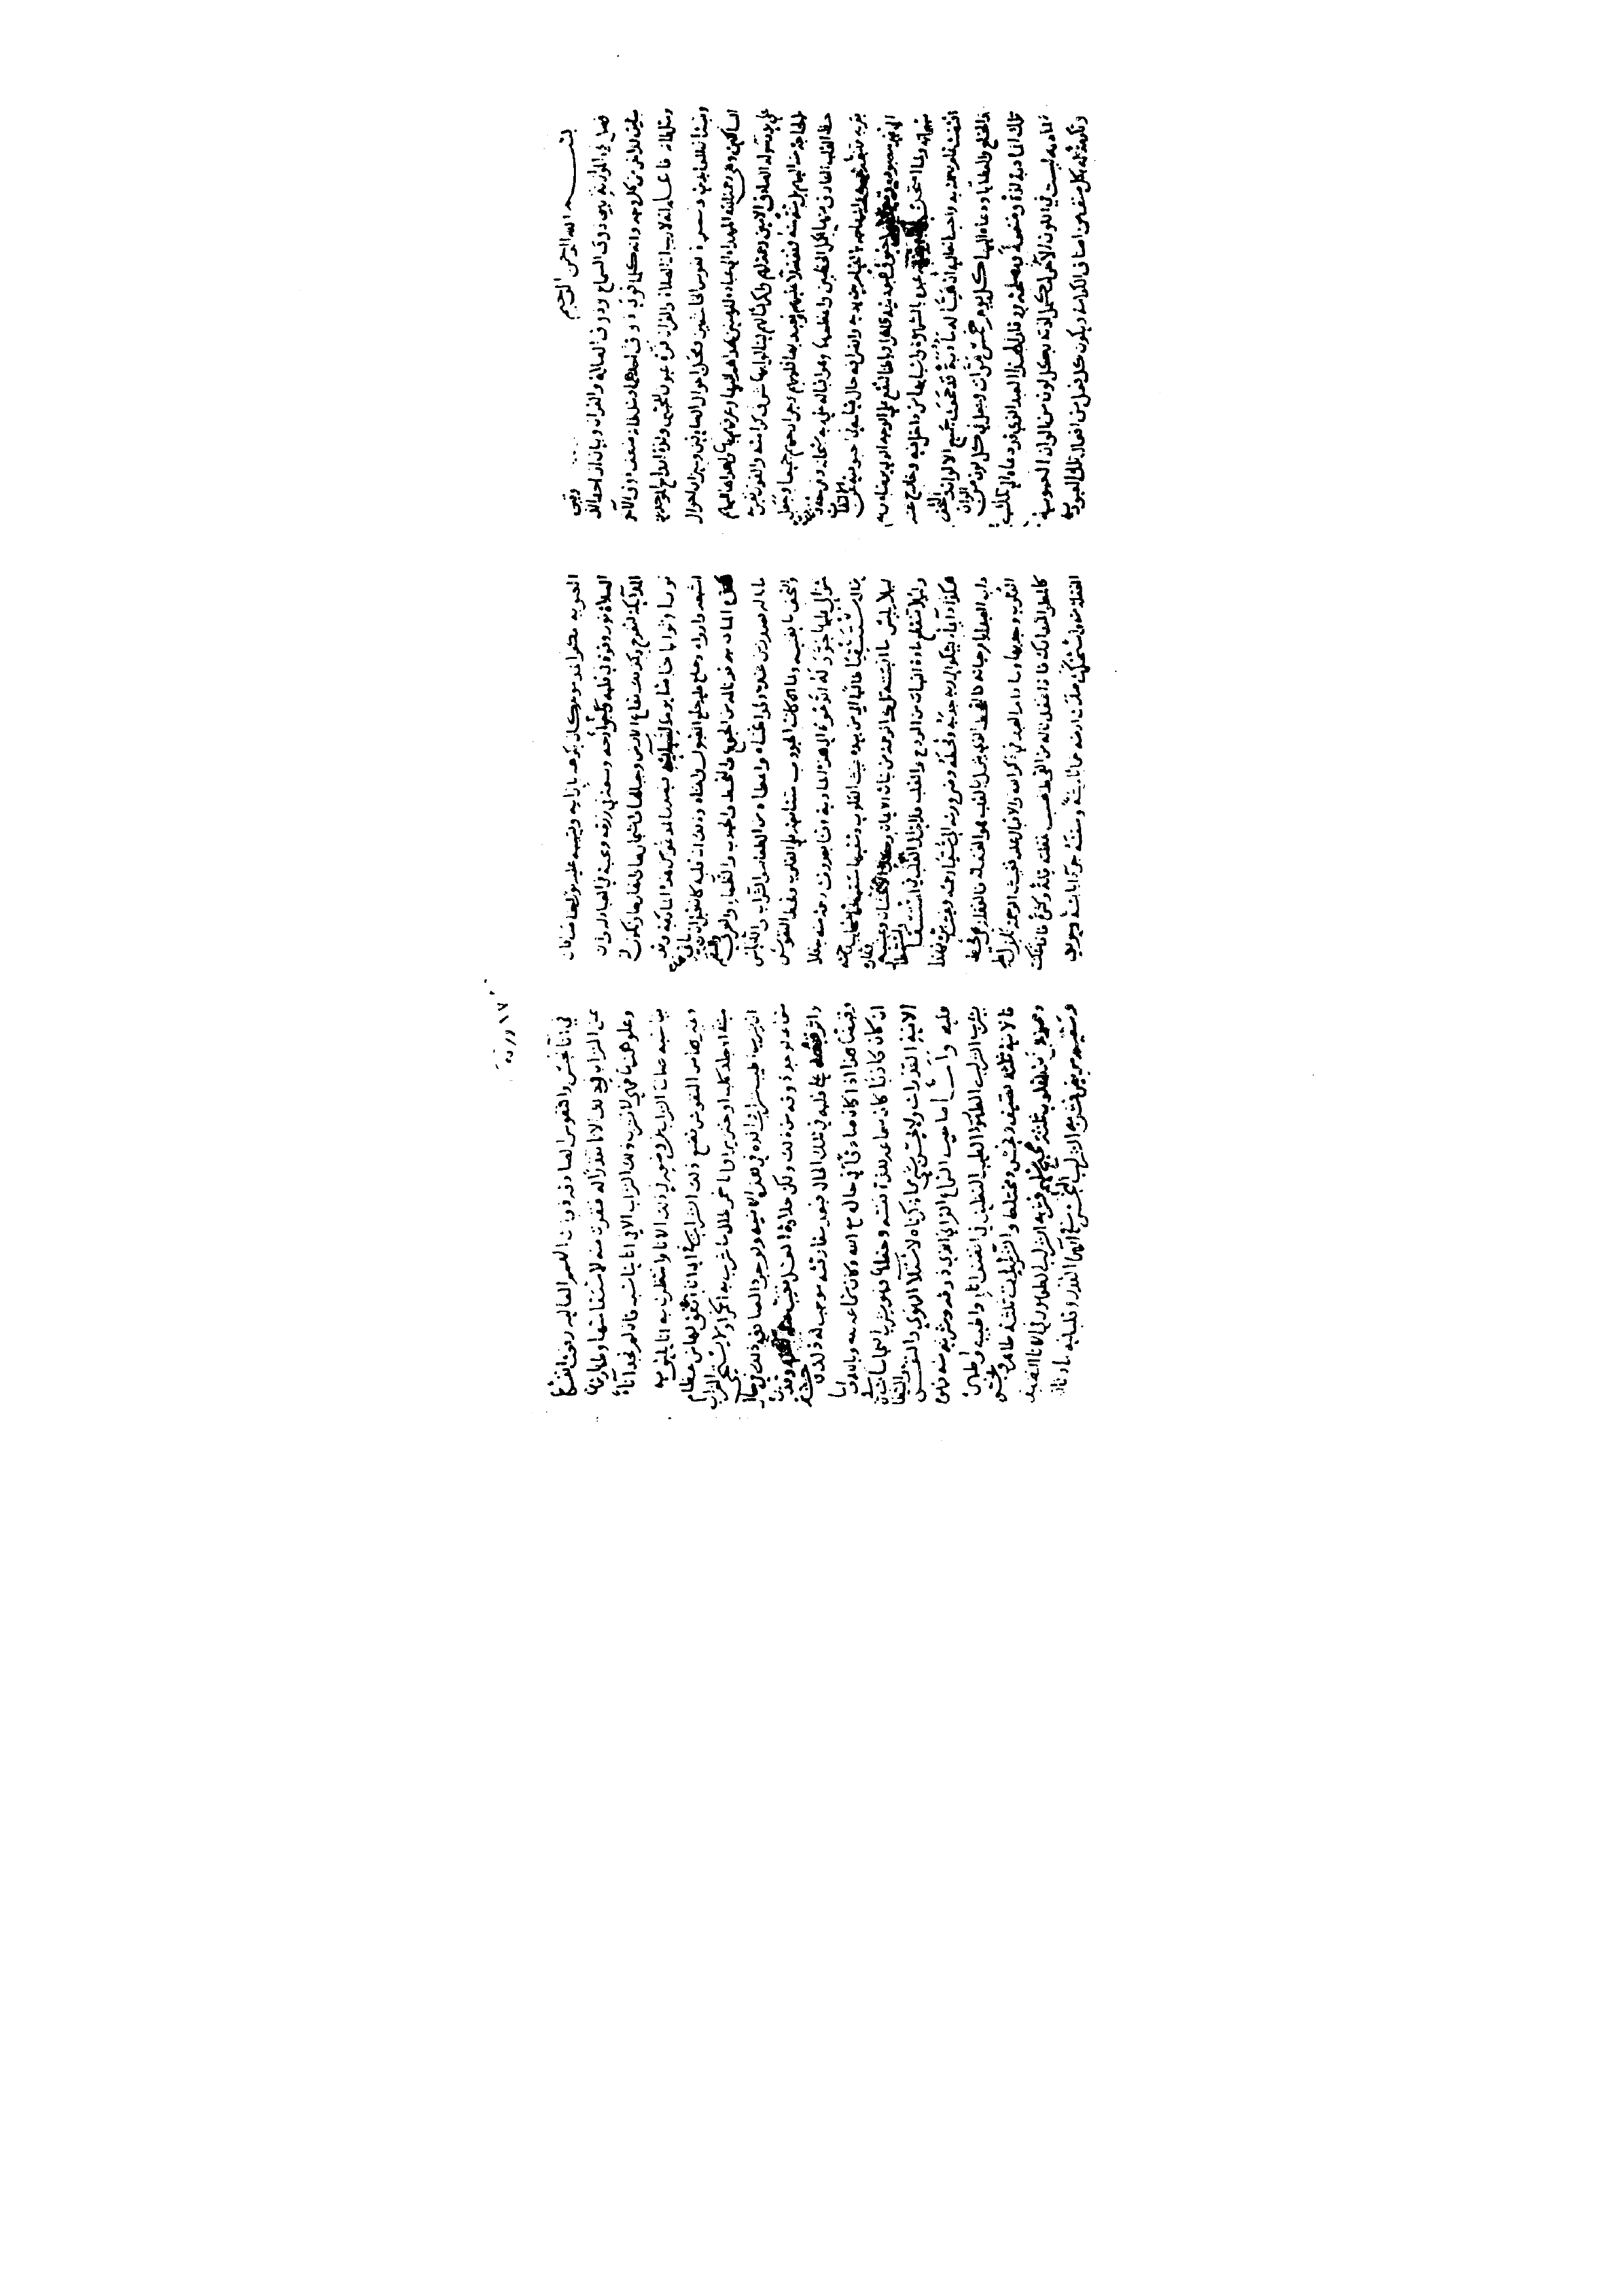 بسم الله الرحمن الرحيم وبه
فصل في الموازنة بين ذوق السماع وذوق الصلاة والقران وبيان ان احد الذوقين
مباين للاخر من كل وجه وانه كلما قوي ذوق احدهما وسلطانه ضعف ذوق الاخر
وسلطانه فاعلم انه لا ريب ان الصلاة والقران قرة عيون المحبين ولذة ارواح الموحدين
وبستان العابدين نفوس الخاشعين ومحك احوال الصادقين وميزان احوال
السالكين وهي رحمته المهداة الى عباده المؤمنين هداهم اليها وعرفهم بها واهداها اليهم
على يد رسوله الصادق الامين رحمة لهم واكراما لهم لينالوا بها شرف كرامته والفوز بقربه
لا لحاجة منه اليهم بل منة منه وتفضلا عليهم وتعبد بها قلوبهم وجوارحهم جميعا وجعل
حظ القلب العارف منها اكمل الحظين واعظمهما وهو اقباله على ربه سبحانه وفرحه
بقربه وتنعمه بالقيام بين يديه وانصرافه حال قيامه الالتفات
الى غير معبوده وتكميله حقوق عبوديته ظاهرا وباطنا لتقع على الوجه الذي يرضاه ربه
سبحانه ولما امتحن عبده بالشهوة واسبابها من داخل فيه وخارج عنه
اقتضت تمام رحمته به واحسانه اليه ان هيأ له مأدبة قد جمعت جميع الالوان والتحف
والخلع والعطايا ودعاه اليها كل يوم خمس مرات وجعل في كل لون من الوان
تلك المادبة لذة ومنفعة ومصلحة لهذا العبد الذي قد دعاه الى تلك
المادبة ليست في اللون الاخر لتكمل لذة عبده في كل لون من الوان العبودية
ويكرمه بكل صنف من اصناف الكرامة ويكون كل فعل من افعال تلك العبودية
العبودية مكفرا لمذموم كان يكرهه بازايه ويثيبه عليه نورا خاصا فان
الصلاة نور وقوة في قلبه وجوارحه وسعة في رزقه ومحبة في العباد له وان
الملائكة لتفرح وكذلك بقاع الارض وجبالها واشجارها وانهارها تكون له
نورا وثوابا خاصا يوم لقائه فيصدر المدعو من هذه المادبة وقد
اشبعه وارواه وخلع عليه خلع القبول واغناه وذلك ان قلبه كان قبل ان ياتي
هذه المادبة قد ناله من الجوع والقحط والجدب والظما والعري والسقم
ما ناله فصدر من عنده وقد اغناه واعطاه من الطعام والشراب واللباس
والتحف ما يغنيه ولما كانت الجدوب متتابعة على القلوب وقحط النفوس
متواليا عليها جدد له الدعوة الى هذه المادبة وقتا بعد وقت رحمة منه به فلا
يزال مستسقيا طالبا الى من بيده غيث القلوب وسقيها مستمطرا سحائب رحمته
ليلا ييبس ما انبتته له تلك الرحمة من نبات الايمان
وليلا تنقطع مادة النبات من الروح والقلب فلا يزال القلب في استسقا واستمطار
هكذا دايما يشكو الى ربه جدبه وقحطه وضرورته الى سقيا رحمته وغيث بره فهذا
داب العبد ايام حياته فالقحط الذي ينزل بالقلب هو الغفلة فالغفلة هي قحط
القلوب وجدبها وما دام العبد في ذكر الله والاقبال عليه فغيث الرحمة ينزل عليه
كالمطر المتدارك فاذا غفل ناله من القحط بحسب غفلته قلة وكثرة فاذا تمكنت
الغفلة منه واستحكمت صارت ارضه خرابا ميتة وسنته جردا يابسة وحريق
١٧ ورقة
في انا نجس والنفوس الصادقة ذوات الهمم العالية رفعت انفسها
عن الشراب في ذلك الانا تقذرا له ففرت منه لاستقامتها وطهارتها
وعلو همتها فهي لا تشرب ذلك الشراب الا في انا يناسبه فاذا لم تجد انا
يناسبه صانت الشراب عن وضعه في ذلك الانا وانتظرت به انا يليق به
وغيرها من النفوس تضع ذلك الشراب في اي انا اتفق لها من عظام
ميتة او جلد كلب او خنزير او انا خمر طال ما شرب به الخمر ولا يستحي الشراب
ان يشرب اطيب شراب في هذه الانية ولو جرد الصادق
وذوقه من ذلك ولكن حلاوة العسل
على قلبه في تلك الحال فبعد مفارقته موجب له ذلك
هذا اذا كان صادقا في حال مع الله وكان سماعه لله وبالله
ان كان كاذبا كان سماعه للذة نفسه وحظها فهو يشرب النجاسات في
الانية القذرات ولا يحس بشي مما ذكرناه لاستيلا الهوى والنفس والشيطان
عليه واما صاحب السماع القراني الذي ذوقه وشربه منه فهو
يشرب الشراب الطهور الطيب النظيف في انظف انا واطيبه واطهره
فالانية ثلثة نظيف ونجس ومختلط والشرابات ثلثة طاهر ونجس
وممزوج والقلوب ثلثة صحيح سليم فشربه الشراب الطهور في الانا النظيف
وسقيم مريض فشربه الشراب النجس في الانا القذر وقلب فيه مادتان